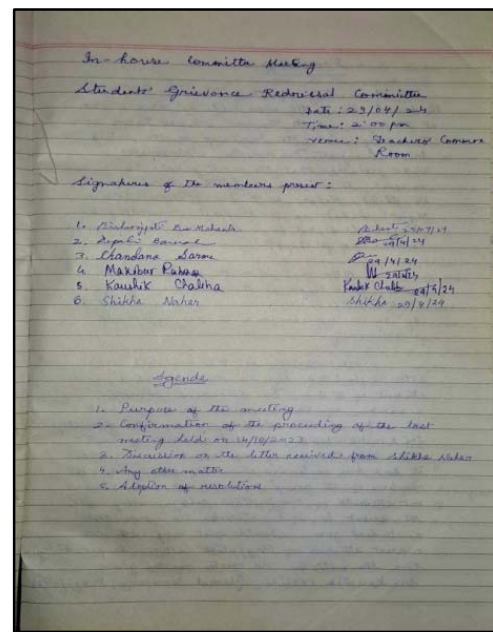 In-house Committee Meeting
Students' Grievance Redressal Committee
Date: 29/04/24
Time: 2:00 pm
Venue: Teachers' Common
Room
Signatures of the members present:
1.
2. Barual 29/4/24
3. Chandana Sarma 29/4/24
4. Makibur Rahman 29/4/24
5. Kaushik Chaliha 29/4/24
6. Shikha Naher Shikha 29/4/24
Agenda
1. Purpose of the meeting
2. Confirmation of the proceeding of the last
meeting held on 14/10/2023
3. Discussion on the letter received from Shikha Naher
4. Any other matter
5. Adoption of resolutions